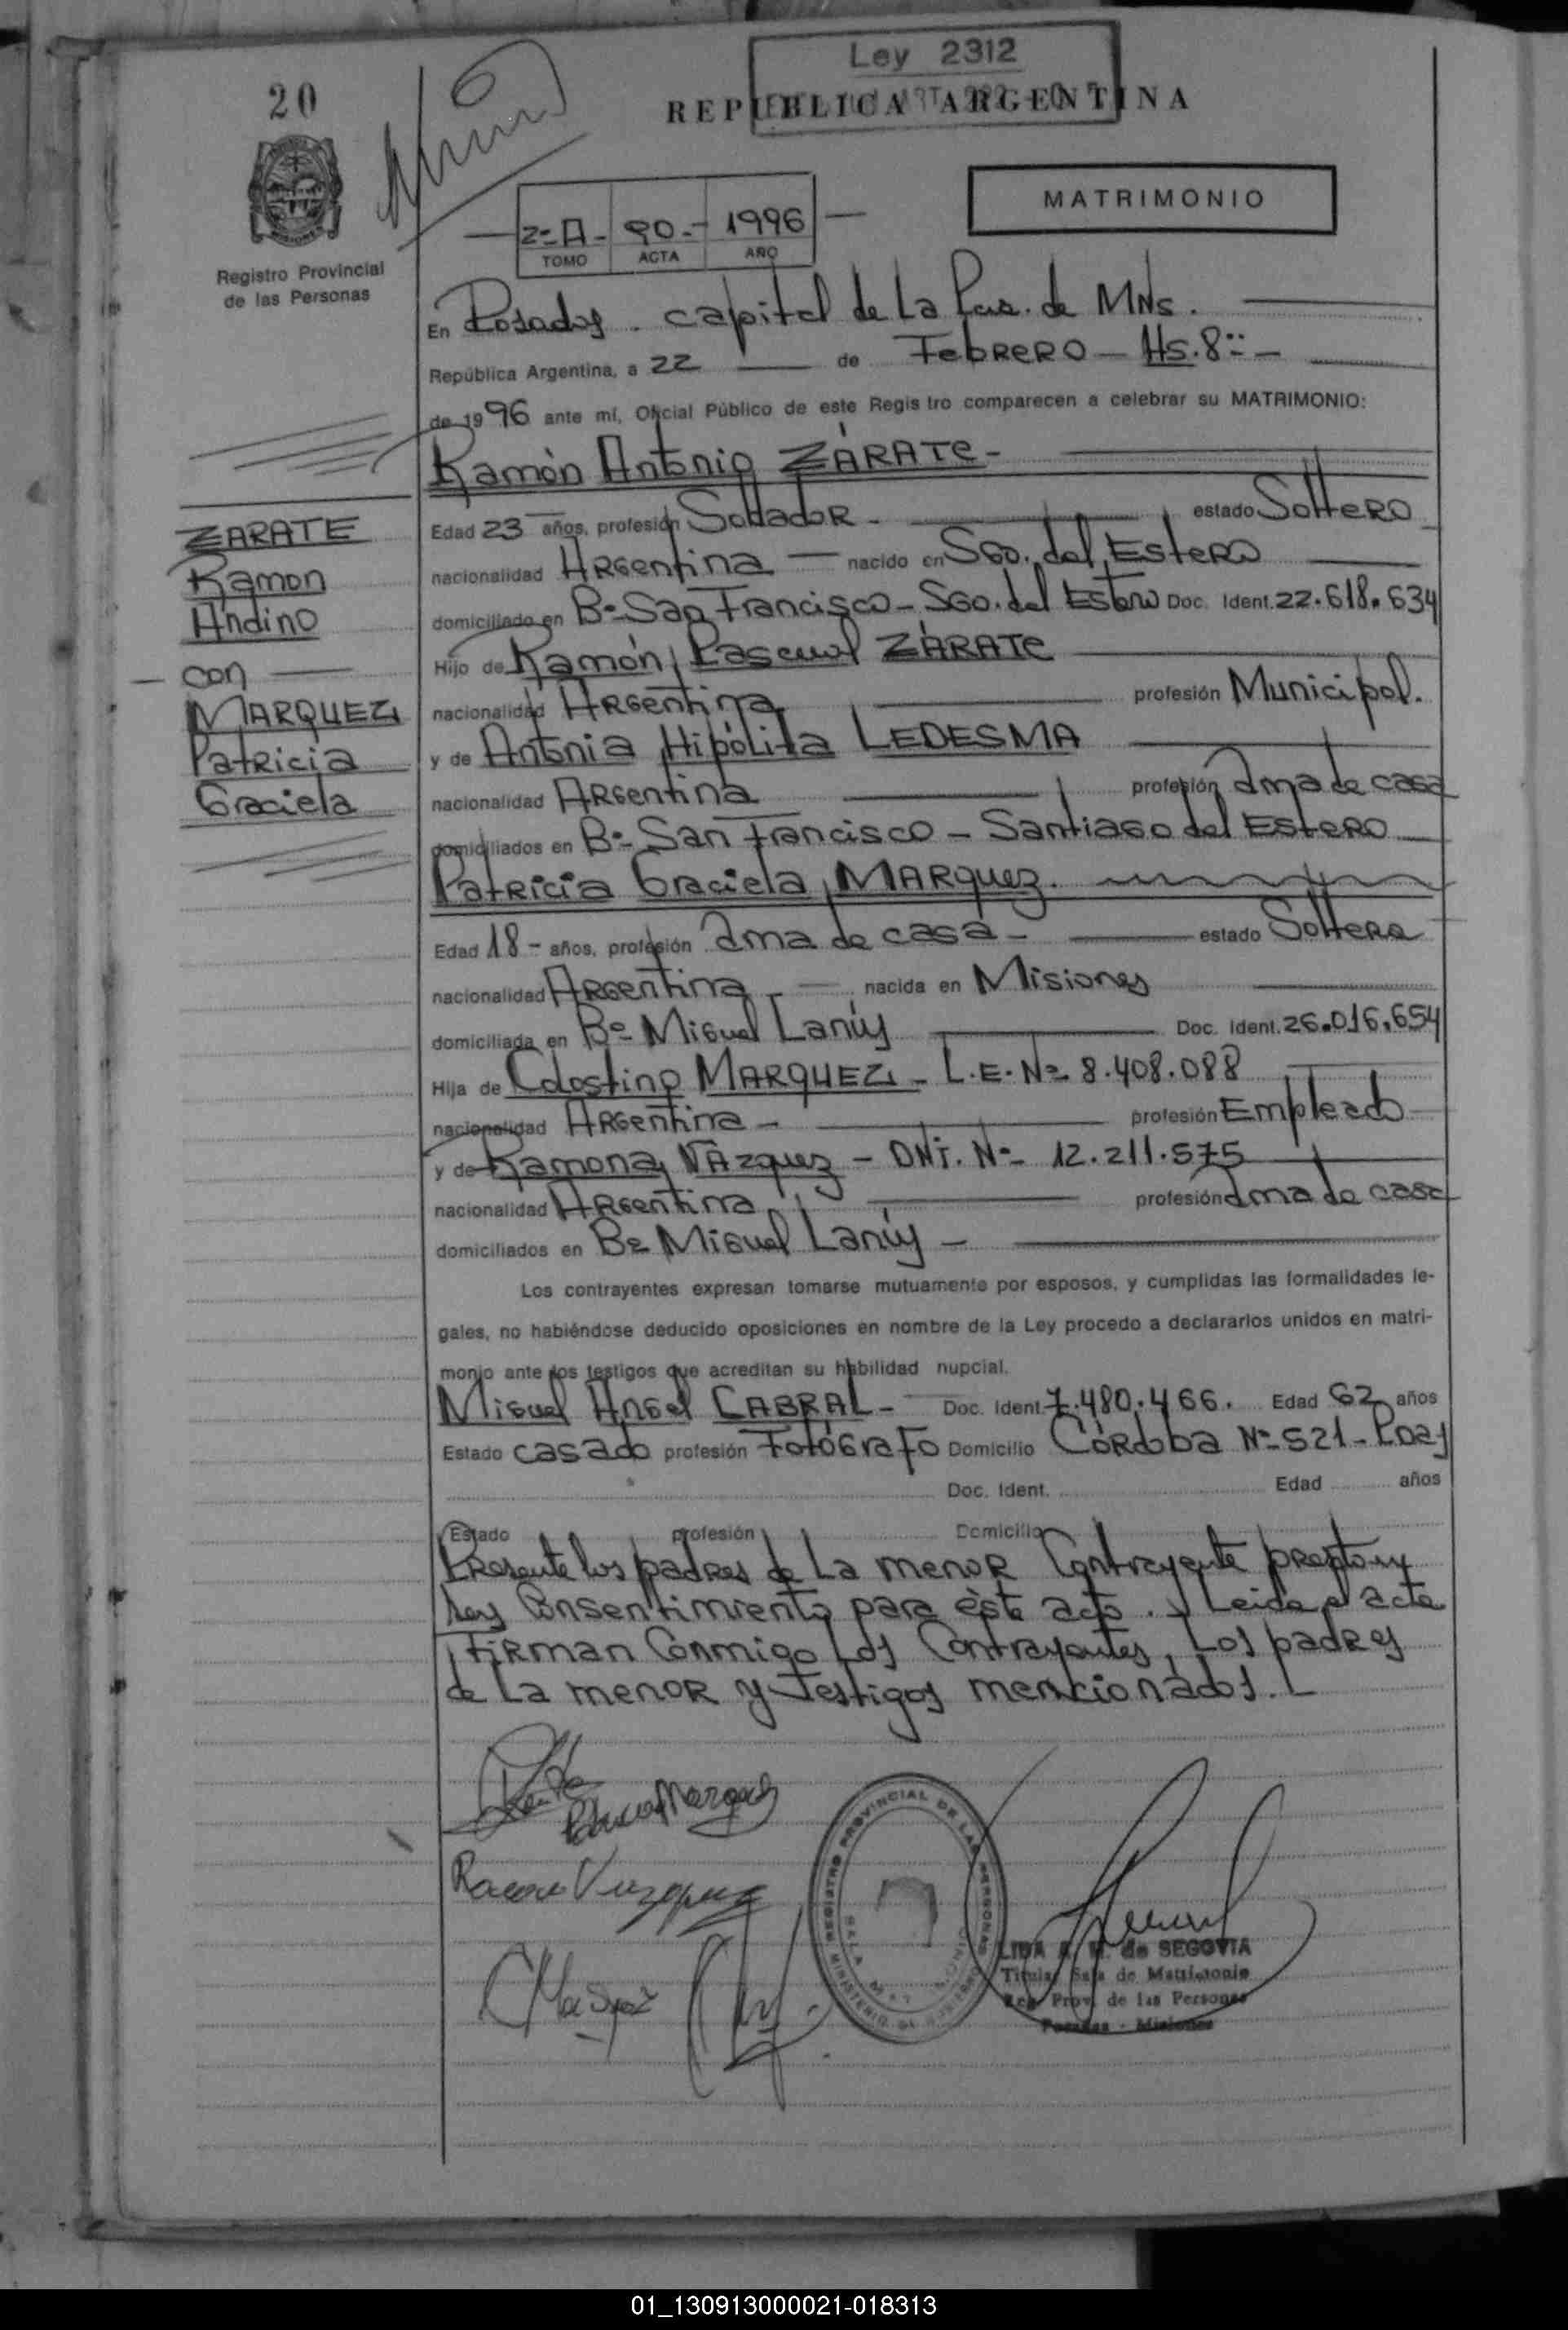 Ley 2312
20
REPUBLICA ARGENTINA
MATRIMONIO
2º A - 90.- 1996
TOMO ACTA AÑO
Registro Provincial
de las Personas
En Posadas. capital de La Pcia. de MNs.
República Argentina, a 22 de Febrero - Hs. 8
de 1996 ante mí, Oficial Público de este Registro comparecen a celebrar su MATRIMONIO:
Ramón Antonio ZÁRATE -
Edad 23 años, profesión Soldador - estado Soltero
nacionalidad Argentina nacido en Sgo. del Estero
domiciliado en Bº San Francisco - Sgo. del Estero Doc. Ident. 22.618.634
Hijo de Ramón Pascual ZÁRATE
nacionalidad Argentina profesión Municipal.
y de Antonia Hipólita LEDESMA
nacionalidad Argentina profesión ama de casa
domiciliados en Bº San Francisco - Santiago del Estero
Patricia Graciela MARQUEZ.
Edad 18 - años, profesión ama de casa - estado Soltera
nacionalidad Argentina nacida en Misiones
domiciliada en Bº Miguel Lanús Doc. Ident. 26.016.654
Hija de Celestino MARQUEZ - L.E. Nº 8.408.088
nacionalidad Argentina - profesión Empleado
y de Ramona VAZQUEZ - DNI. Nº 12.211.575
nacionalidad Argentina profesión ama de casa
domiciliados en Bº Miguel Lanús -
ZARATE
Ramon
Andino
con
MARQUEZ
Patricia
Graciela
Los contrayentes expresan tomarse mutuamente por esposos, y cumplidas las formalidades le-
gales, no habiéndose deducido oposiciones en nombre de la Ley procedo a declararlos unidos en matri-
monio ante los testigos que acreditan su habilidad nupcial.
Miguel Angel CABRAL - Doc. Ident. 7.480.466. Edad 62 años
Estado casado profesión Fotógrafo Domicilio Córdoba Nº 521 - Pdas
Doc. Ident. Edad años
Estado profesión Domicilio
Presente los padres de La menor Contrayente prestan
su Consentimiento para éste acto. y Leida el acta
Firman Conmigo Los Contrayentes, Los padres
de La menor y Testigos mencionados.
Ramona Vazquez
REGISTRO PROVINCIAL DE LAS PERSONAS
LIDA de SEGOVIA
Titular Sala de Matrimonio
Reg. Prov. de las Personas
Posadas - Misiones
01_130913000021-018313